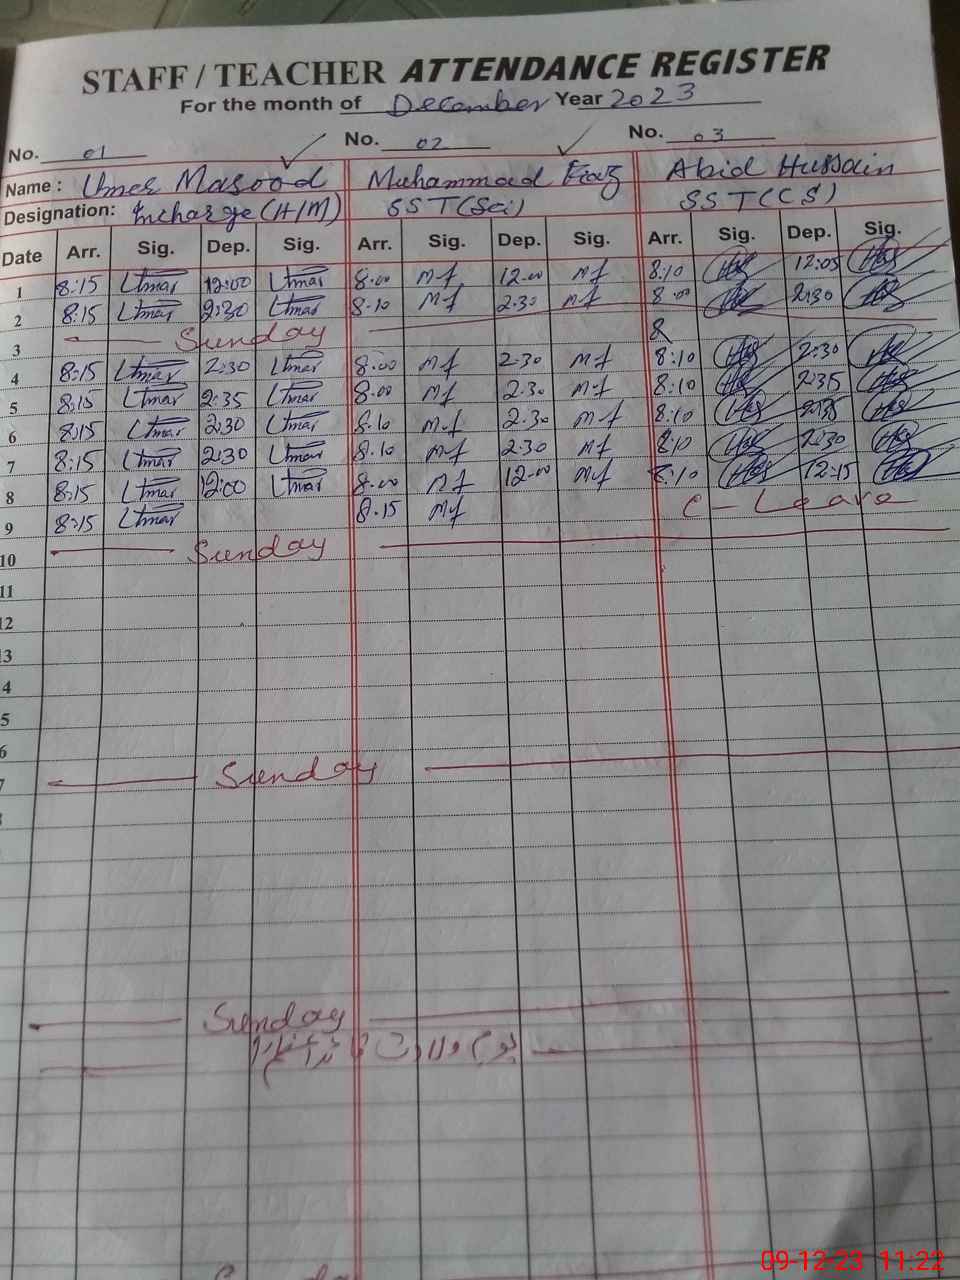 STAFF / TEACHER ATTENDANCE REGISTER
For the month of December Year 2023
No. 01 No. 02 No. 03
Name : Umer Masood Muhammad Fiaz Abid Hussain
Designation: Incharge (H/M) SST (Sci) SST (CS)
Date Arr. Sig. Dep. Sig. Arr. Sig. Dep. Sig. Arr. Sig. Dep. Sig.
1 8:15 Umar 12:00 Umar 8.00 Mf 12.00 Mf 8:10 12:05
2 8:15 Umar 2:30 Umar 8.10 Mf 2.30 Mf 8:00 2:30
3 Sunday 8
4 8:15 Umar 2:30 Umar 8.00 Mf 2.30 Mf 8:10 2:30
5 8:15 Umar 2:35 Umar 8.00 Mf 2.30 Mf 8:10 2:35
6 8:15 Umar 2:30 Umar 8.10 Mf 2.30 Mf 8:10 2:35
7 8:15 Umar 2:30 Umar 8.10 Mf 2.30 Mf 8:10 2:30
8 8:15 Umar 12:00 Umar 8.00 Mf 12.00 Mf 8:10 12:15
9 8:15 Umar 8.15 Mf C - Leave
10 Sunday
11
12
13
4
5
6
7 Sunday
Sunday
یوم ولادت قائد اعظم
09-12-23 11:22